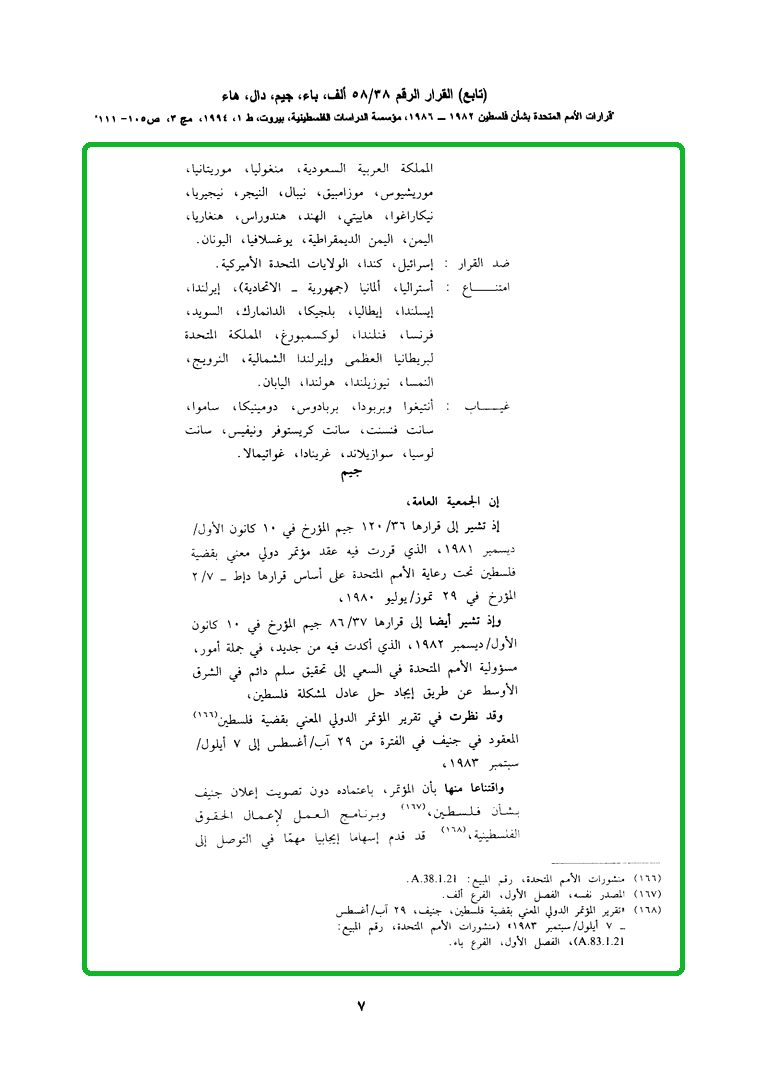 (تابع) القرار الرقم ٥٨/٣٨ ألف، باء، جيم، دال، هاء
"قرارات الأمم المتحدة بشأن فلسطين ١٩٨٢ ــ ١٩٨٦، مؤسسة الدراسات الفلسطينية، بيروت، ط ١، ١٩٩٤، مج ٣، ص١٠٥- ١١١"
المملكة العربية السعودية، منغوليا، موريتانيا،
موريشيوس، موزامبيق، نيبال، النيجر، نيجيريا،
نيكاراغوا، هاييتي، الهند، هندوراس، هنغاريا،
اليمن، اليمن الديمقراطية، يوغسلافيا، اليونان.
ضد القرار : إسرائيل، كندا، الولايات المتحدة الأميركية.
امتنـــــاع : أستراليا، ألمانيا (جمهورية ـ الاتحادية)، إيرلندا،
إيسلندا، إيطاليا، بلجيكا، الدانمارك، السويد،
فرنسا، فنلندا، لوكسمبورغ، المملكة المتحدة
لبريطانيا العظمى وإيرلندا الشمالية، النرويج،
النمسا، نيوزيلندا، هولندا، اليابان.
غيـــــاب : أنتيغوا وبربودا، بربادوس، دومينيكا، ساموا،
سانت فنسنت، سانت كريستوفر ونيفيس، سانت
لوسيا، سوازيلاند، غرينادا، غواتيمالا.
جيم
إن الجمعية العامة،
إذ تشير إلى قرارها ١٢٠/٣٦ جيم المؤرخ في ١٠ كانون الأول/
ديسمبر ١٩٨١، الذي قررت فيه عقد مؤتمر دولي معني بقضية
فلسطين تحت رعاية الأمم المتحدة على أساس قرارها داط ـ ٢/٧
المؤرخ في ٢٩ تموز/يوليو ١٩٨٠،
وإذ تشير أيضا إلى قرارها ٨٦/٣٧ جيم المؤرخ في ١٠ كانون
الأول/ديسمبر ١٩٨٢، الذي أكدت فيه من جديد، في جملة أمور،
مسؤولية الأمم المتحدة في السعي إلى تحقيق سلم دائم في الشرق
الأوسط عن طريق إيجاد حل عادل لمشكلة فلسطين،
وقد نظرت في تقرير المؤتمر الدولي المعني بقضية فلسطين(١٦٦)
المعقود في جنيف في الفترة من ٢٩ آب/أغسطس إلى ٧ أيلول/
سبتمبر ١٩٨٣،
واقتناعا منها بأن المؤتمر، باعتماده دون تصويت إعلان جنيف
بشأن فلسطين،(١٦٧) وبرنامج العمل لإعمال الحقوق
الفلسطينية،(١٦٨) قد قدم إسهاما إيجابيا مهمًا في التوصل إلى
(١٦٦) منشورات الأمم المتحدة، رقم المبيع: A.38.1.21.
(١٦٧) المصدر نفسه، الفصل الأول، الفرع ألف.
(١٦٨) «تقرير المؤتمر الدولي المعني بقضية فلسطين، جنيف، ٢٩ آب/أغسطس
ـ ٧ أيلول/سبتمبر ١٩٨٣» (منشورات الأمم المتحدة، رقم المبيع:
A.83.1.21)، الفصل الأول، الفرع باء.
٧